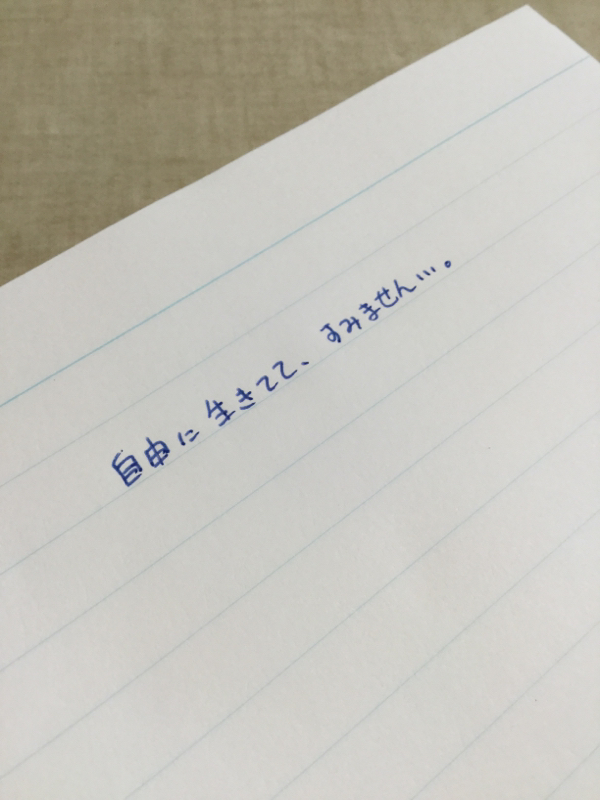 自由に生きてて、すみません…。